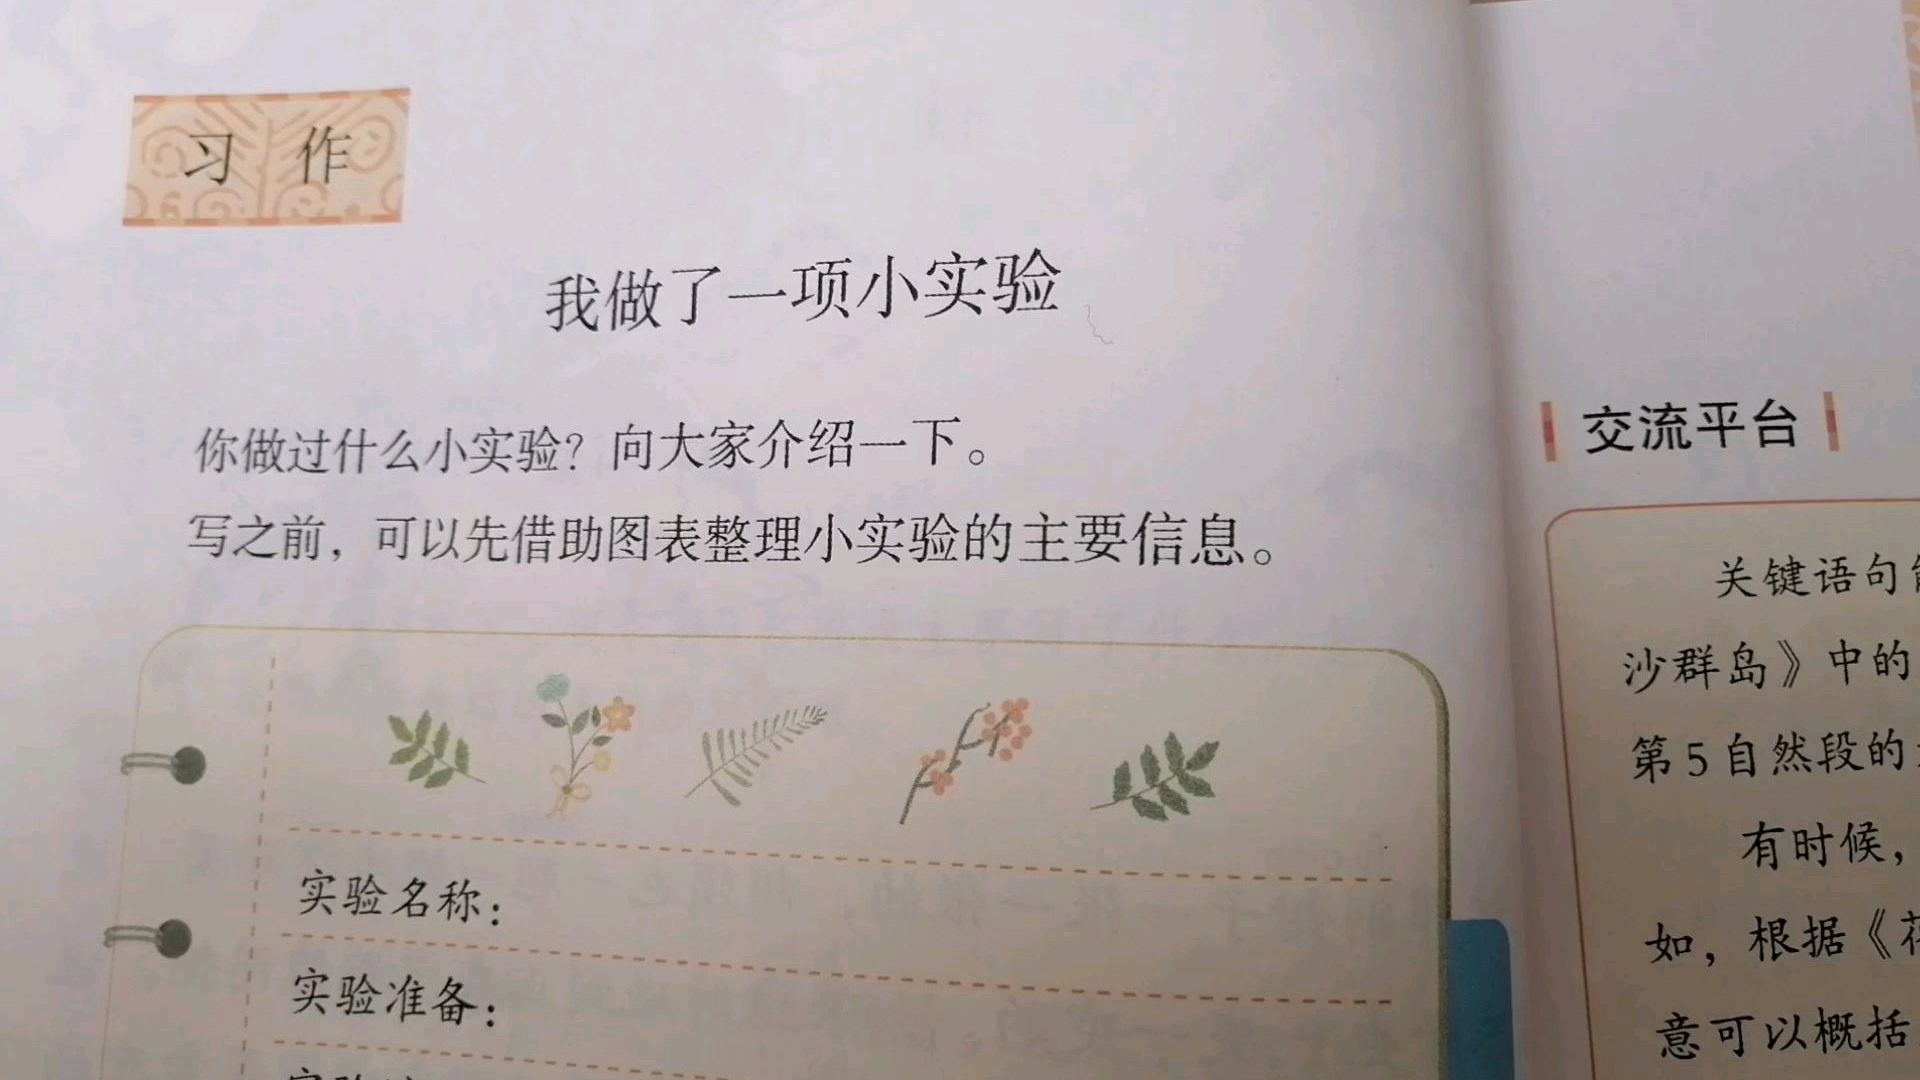 习 作
我做了一项小实验
你做过什么小实验？向大家介绍一下。
写之前，可以先借助图表整理小实验的主要信息。
实验名称：
实验准备：
交流平台
关键语句
沙群岛》中的
第5自然段的
有时候，
如，根据《
意可以概括